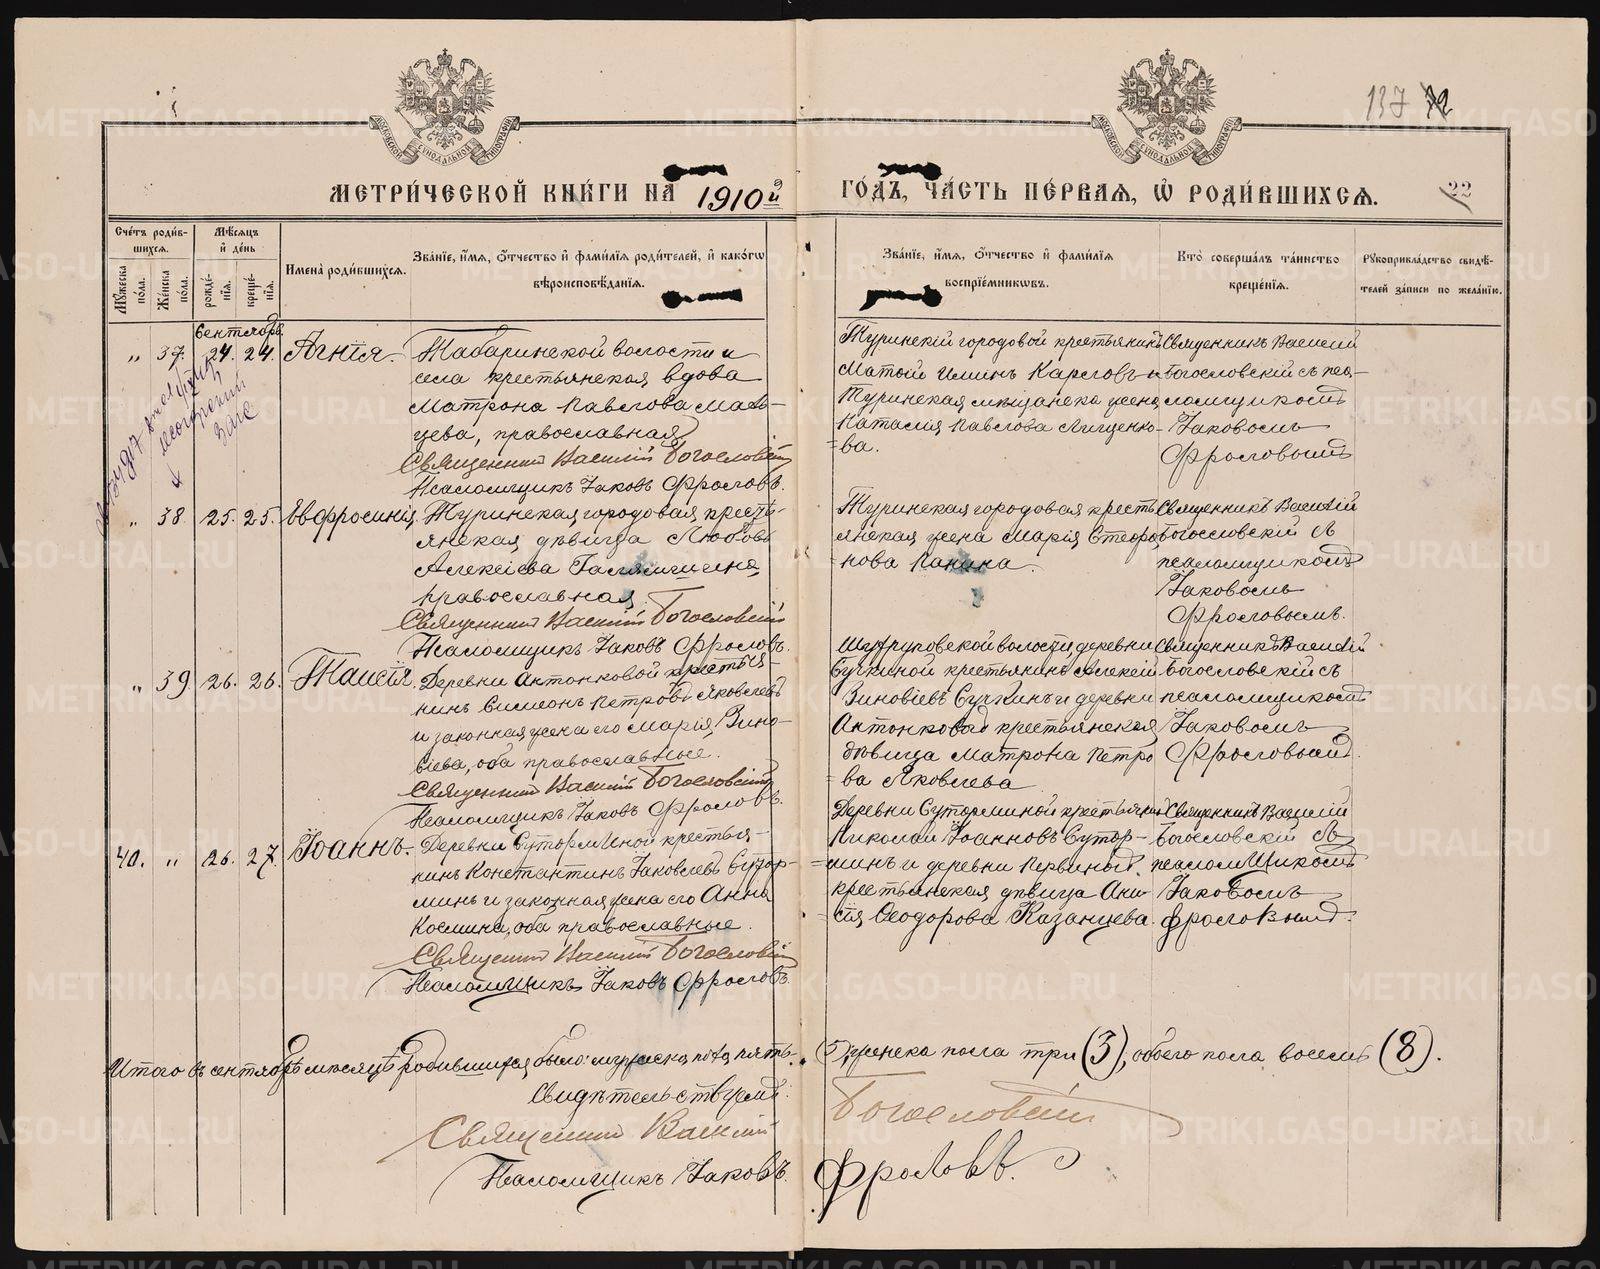 137 72
МЕТРИ́ЧЕСКОЙ КНИ́ГИ НА 1910й ГО́ДЪ, ЧА́СТЬ ПЕ́РВАЯ, Ѽ РОДИ́ВШИХСЯ. 22
МОСКОВСКОЙ СУНОДАЛЬНОЙ ТИПОГРАФІИ
МОСКОВСКОЙ СУНОДАЛЬНОЙ ТИПОГРАФІИ
Сче́тъ роди́в-
шихся.
Му́жеска по́ла.
Же́нска по́ла.
Мѣ́сяцъ
и҆ де́нь
рожде́-
нія.
креще́-
нія.
Имена̀ роди́вшихся.
Зва́ніе, и҆́мя, ѻ҆́тчество и҆ фами́лія роди́телей, и҆ како́гѡ
вѣроисповѣ́данія.
Зва́ніе, и҆́мя, ѻ҆́тчество и҆ фами́лія
воспріе́мниковъ.
Кто̀ соверша́лъ та́инство
креще́нія.
Рукоприкла́дство свидѣ́-
телей за́писи по жела́нію.
Сентябрь
„ 37. 24. 24. Агнія.
Табаринской волости и
села крестьянская вдова
Матрона Павлова Маль-
цева, православная
Священникъ Василій Богословскій
Псаломщикъ Іаковъ Фроловъ.
Туринскій городовой крестьянинъ
Матѳій Иминъ Карловъ и
Туринская мѣщанска жена
Наталія Павлова Лященко-
ва.
Священникъ Василій
Богословскій съ пса-
ломщикомъ
Іаковомъ
Фроловымъ
„ 38. 25. 25. Евфросинія.
Туринская городовая кресть-
янская дѣвица Любовь
Алексіева Галямшина,
православная.
Священникъ Василій Богословскій
Псаломщикъ Іаковъ Фроловъ.
Туринская городовая кресть-
янская жена Марія Стефа-
нова Панина.
Священникъ Василій
Богословскій съ
псаломщикомъ
Іаковомъ
Фроловымъ.
„ 39. 26. 26. Таисія.
Деревни Антонковой крестья-
нинъ Симеонъ Петровъ Яковлевъ
и законная жена его Марія Зино-
віева, оба православные.
Священникъ Василій Богословскій
Псаломщикъ Іаковъ Фроловъ.
волости деревни
Сучкиной крестьянинъ Алексій
Зиновіевъ Сучкинъ и деревни
Антонковой крестьянская
дѣвица Матрона Петро-
ва Яковлева
Священникъ Василій
Богословскій съ
псаломщикомъ
Іаковомъ
Фроловымъ.
40. „ 26. 27. Іоаннъ.
Деревни Суторминой крестья-
нинъ Константинъ Іаковлевъ Сутор-
минъ и законная жена его Анна
Космина, оба православные.
Священникъ Василій Богословскій
Псаломщикъ Іаковъ Фроловъ.
Деревни Суторминой крестьянинъ
Николай Іоанновъ Сутор-
минъ и деревни Первиной
крестьянская дѣвица Ани-
сія Ѳеодорова Казанцева.
Священникъ Василій
Богословскій съ
псаломщикомъ
Іаковомъ
Фроловымъ.
Итого въ сентябрѣ мѣсяцѣ родившихся было: мужеска пола пять 5, женска пола три (3), обоего пола восемь (8).
Свидѣтельствуемъ:
Священникъ Василій Богословскій
Псаломщикъ Іаковъ Фроловъ.